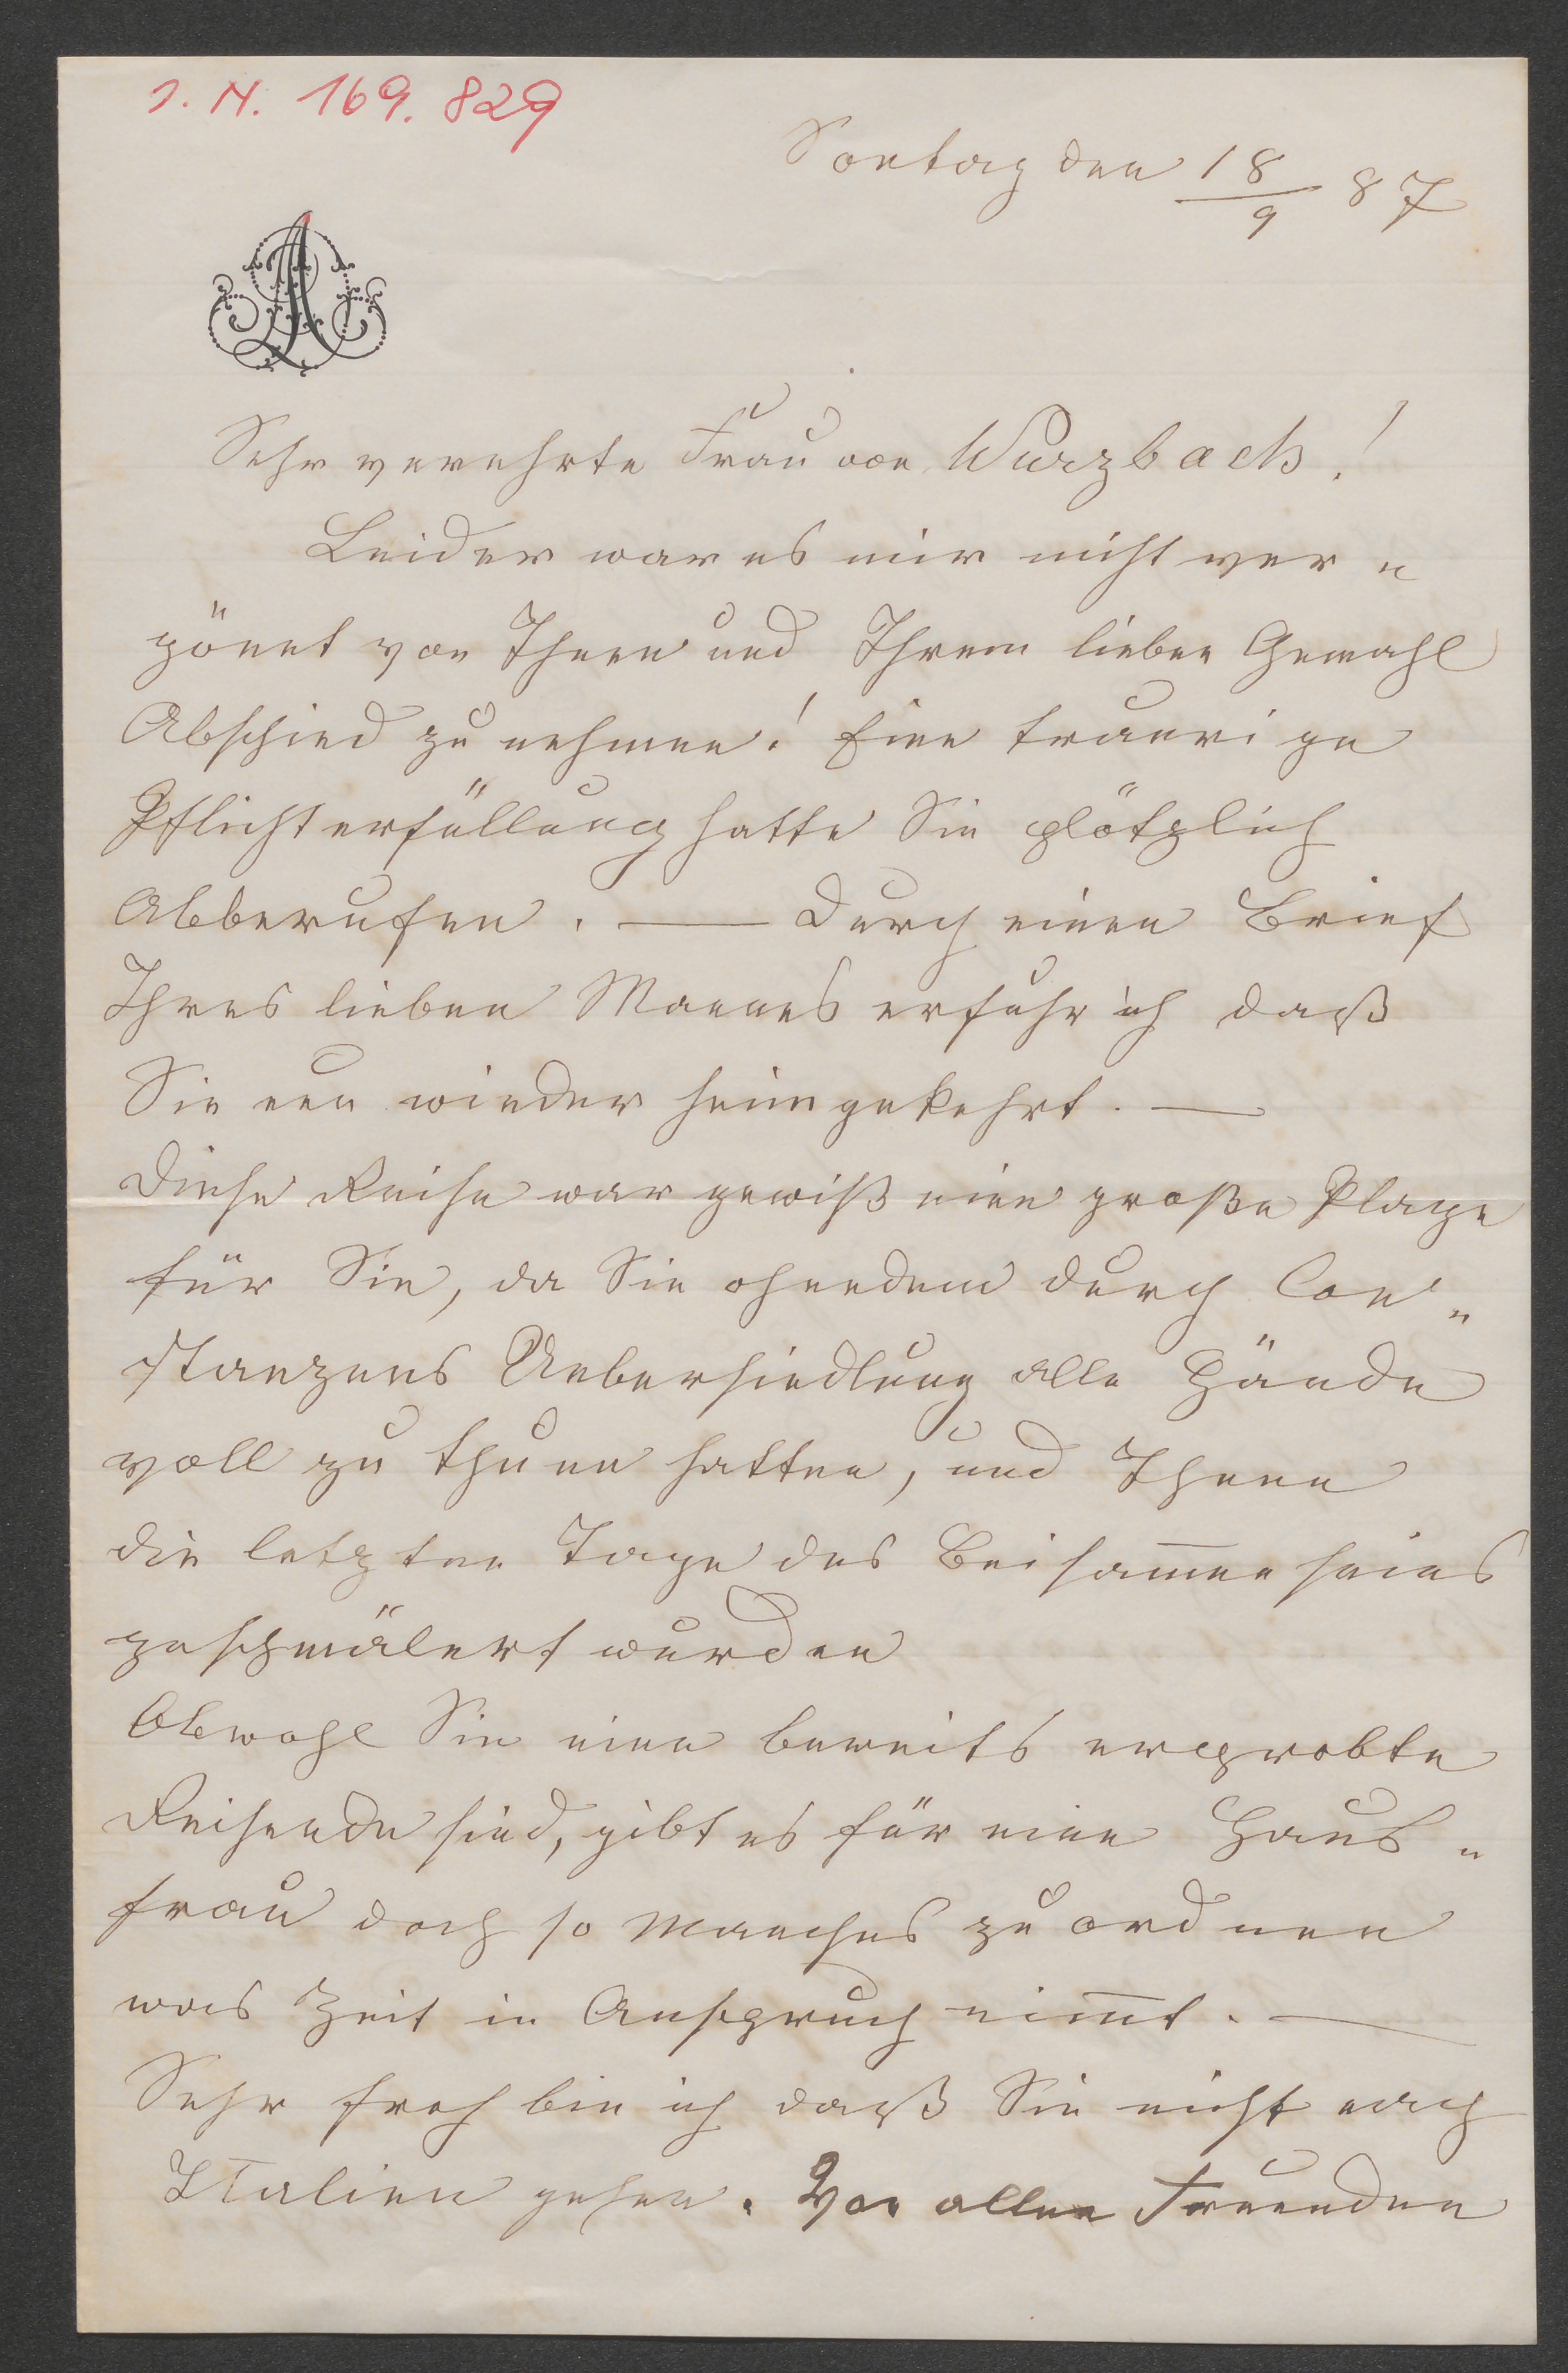 J. N. 169.829
Sontag den 18/9 87
Sehr verehrte Frau von Wurzbach!
Leider war es mir nicht ver„
gönnt von Ihnen und Ihrem lieben Gemahl
Abschied zu nehmen! Eine traurige
Pflichterfüllung hatte Sie plötzlich
Abberufen. — Durch einen Brief
Ihres lieben Mannes erfuhr ich daß
Sie nun wieder heimgekehrt. —
Diese Reise war gewiß eine große Plage
für Sie, da Sie ohnedem durch Con„
stanzens Uebersiedlung alle Hände
voll zu thuen hatten, und Ihnen
die letzten Tage des Beisam̅enseins
geschmälert wurden
Obwohl Sie eine bereits erprobte
Reisende sind, gibt es für eine Haus„
frau doch so manches zu ordnen
was Zeit in Anspruch nim̅t. —
Sehr froh bin ich daß Sie nicht nach
Italien gehen. Von allen Freunden